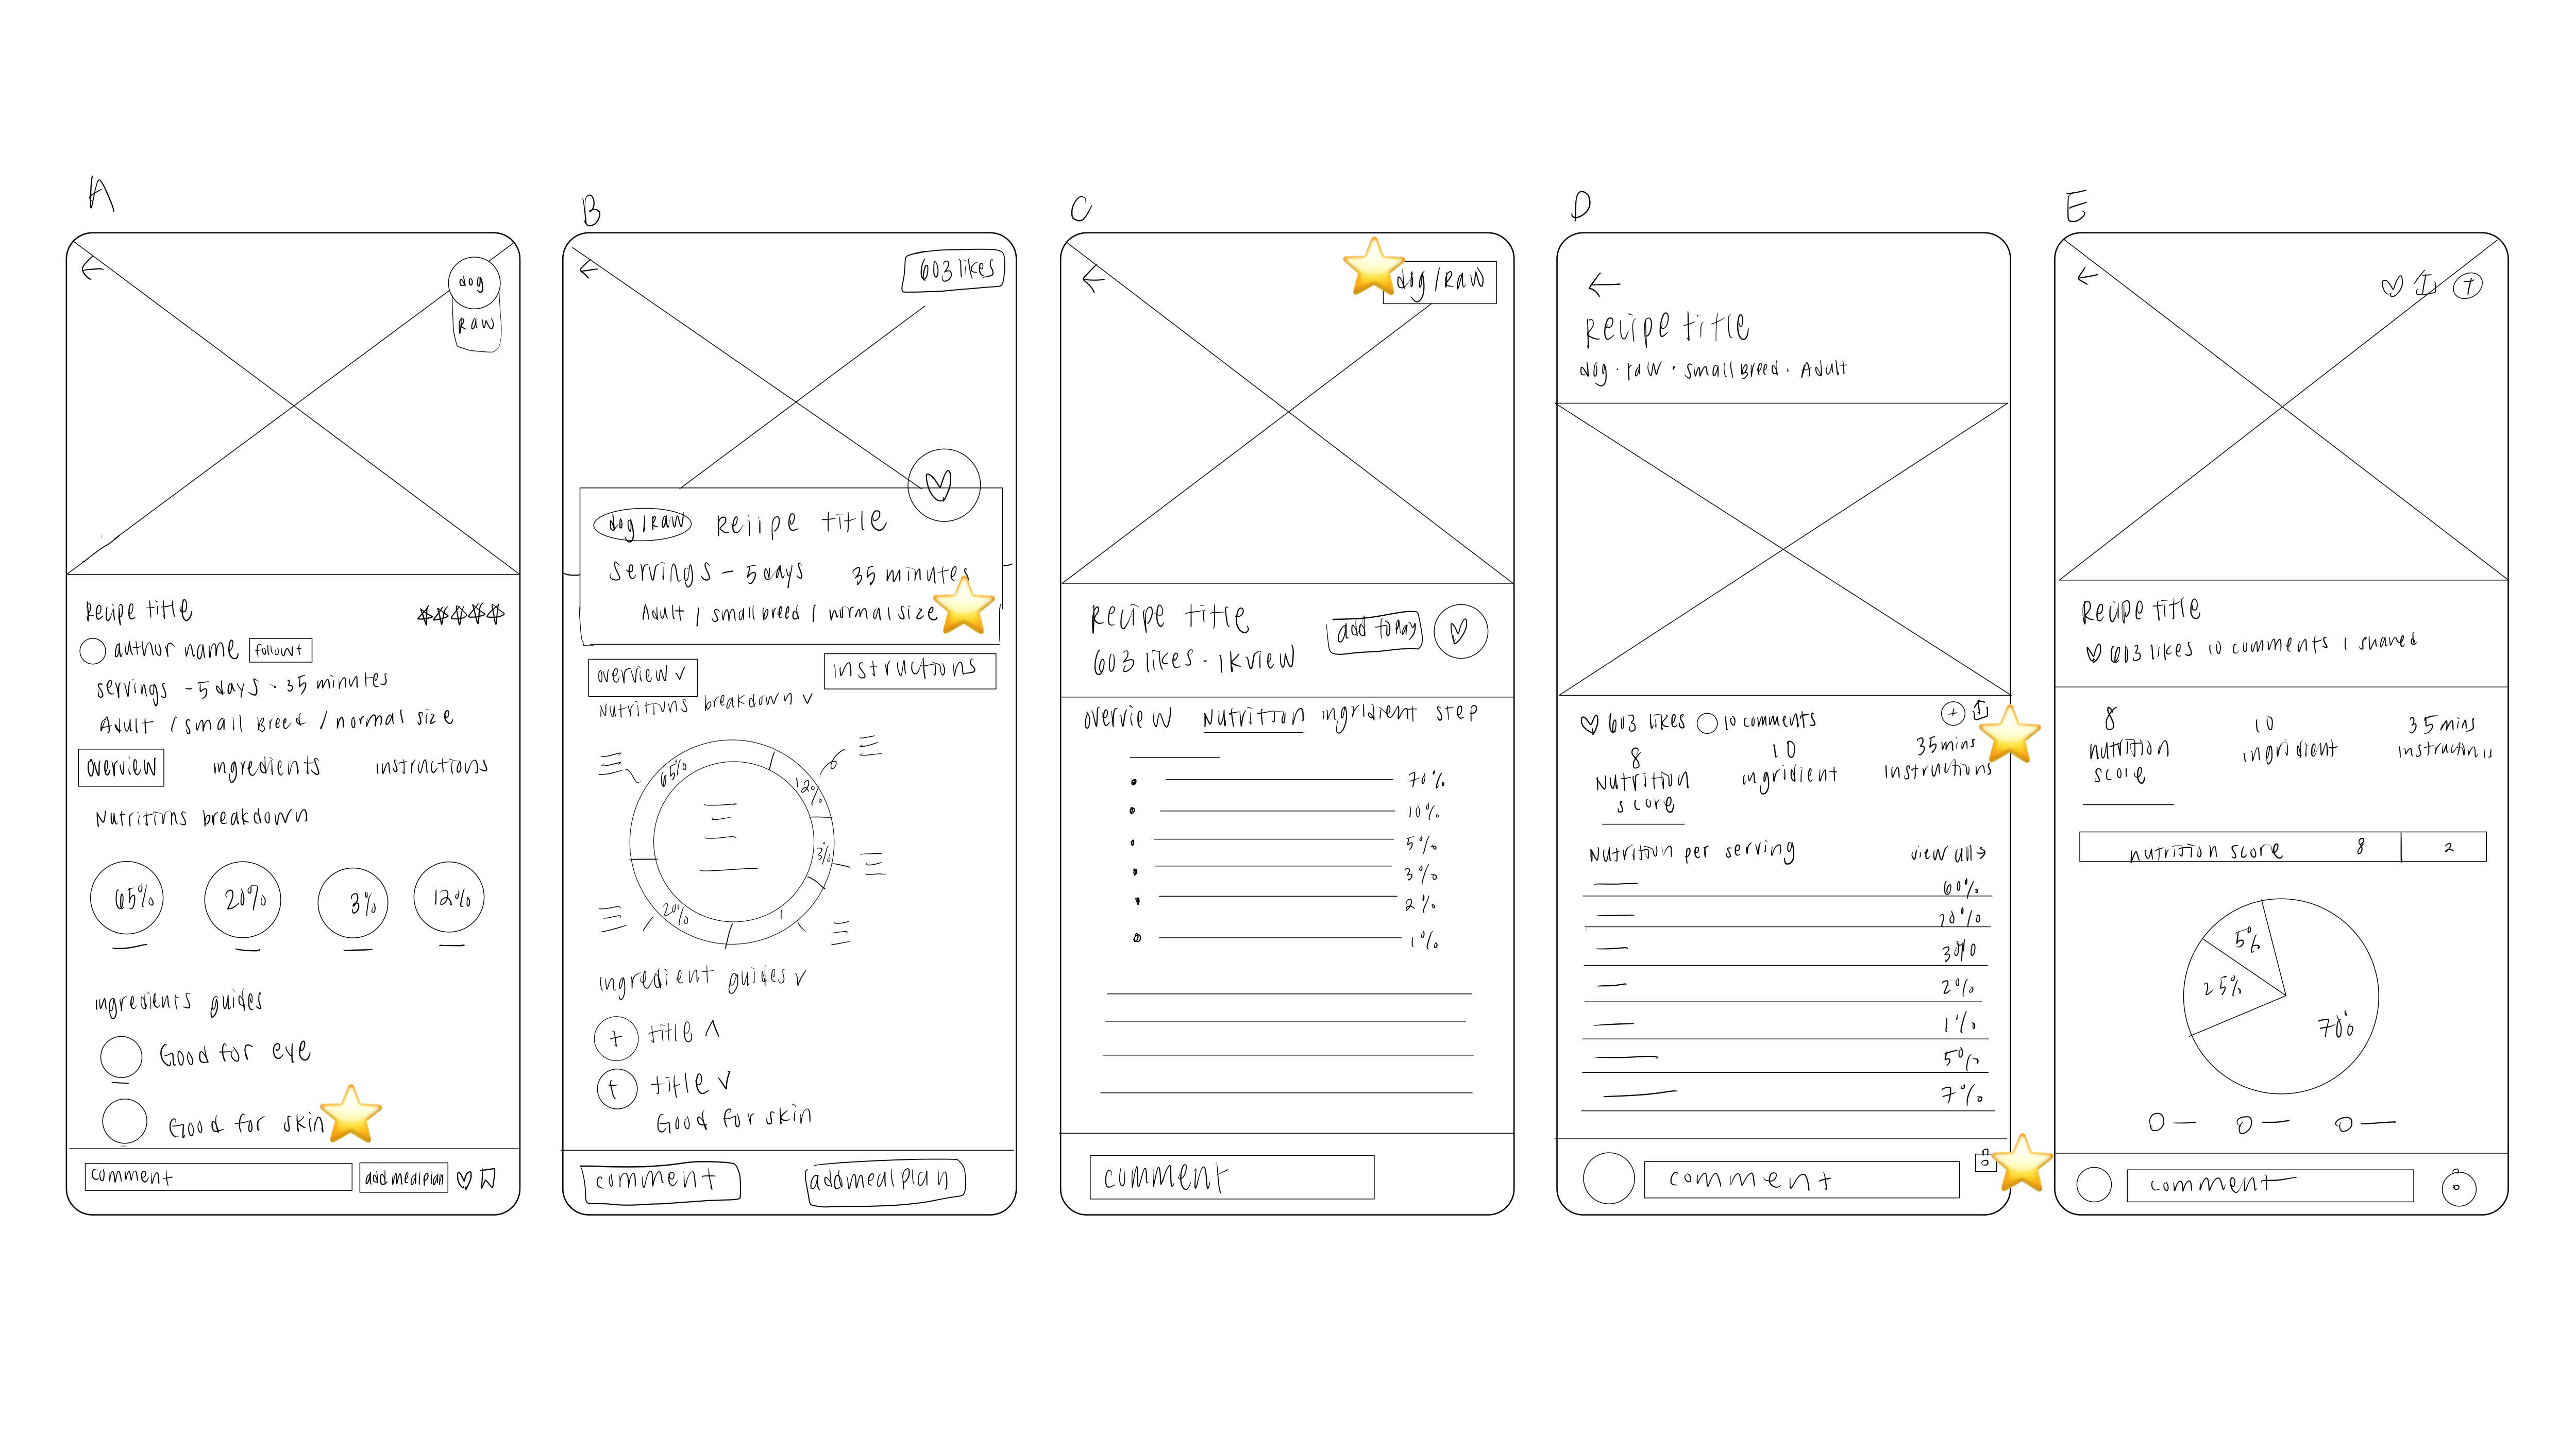 A
dog
RAW
Recipe title
author name follow+
servings - 5 days - 35 minutes
Adult / small Breed / normal size
overview ingredients instructions
Nutritions breakdown
65% 20% 3% 12%
ingredients guides
Good for eye
Good for skin
comment add mealplan
B
603 likes
dog / RAW Recipe title
servings - 5 days 35 minutes
Adult / small breed / normal size
overview instructions
Nutritions breakdown
65%
12%
3%
20%
ingredient guides
title
title
Good for skin
comment add meal plan
C
dog / RAW
Recipe title
add to play
603 likes - 1k view
overview Nutrition ingridient step
70%
10%
5%
3%
2%
1%
comment
D
Recipe title
dog · raw · small Breed · Adult
603 likes 10 comments
8 10 35 mins
Nutrition ingridient instructions
score
Nutrition per serving view all →
60%
20%
30%
2%
1%
5%
7%
comment
E
Recipe title
603 likes 10 comments 1 shared
8 10 35 mins
nutrition ingridient instructions
score
nutrition score 8 2
5%
25%
70%
comment